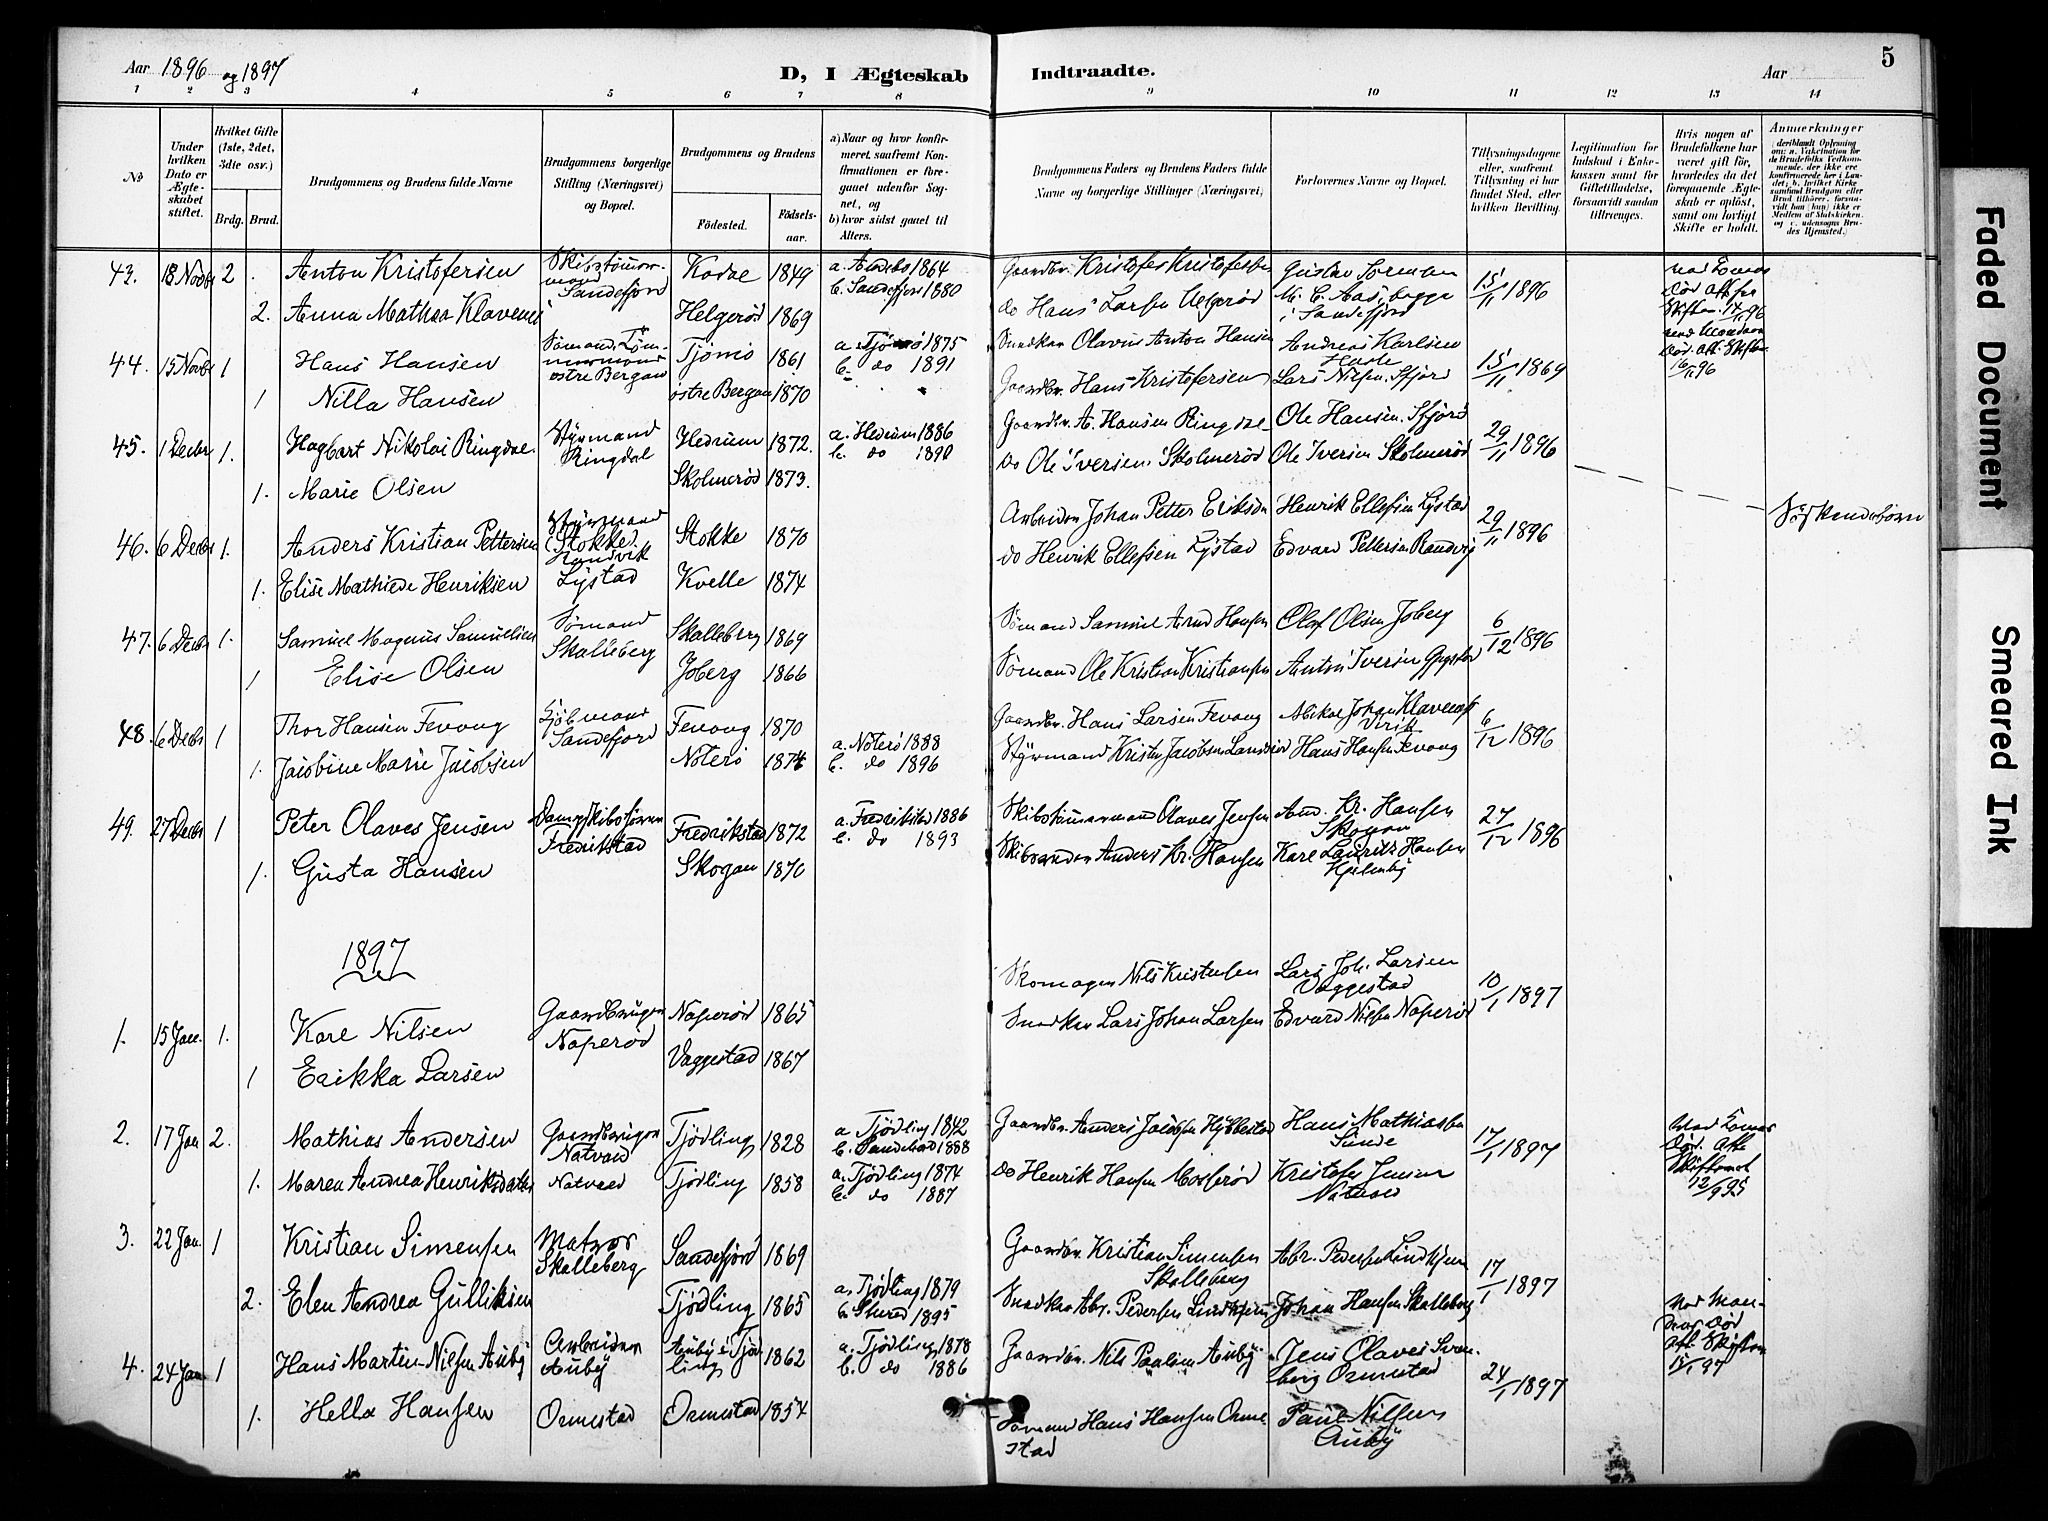 Aar 1896 og 1897
D, I Ægteskab
Indtraadte.
Aar
5
1 2 3 4 5 6 7 8 9 10 11 12 13 14
No
Under hvilken Dato er Ægteskabet stiftet.
Hvilket Gifte (1ste, 2det, 3die osv.)
Brdg. Brud.
Brudgommens og Brudens fulde Navne
Brudgommens borgerlige Stilling (Næringsvei) og Bopæl.
Brudgommens og Brudens
Fødested.
Fødselsaar.
a) Naar og hvor konfirmeret, saafremt Konfirmationen er foregaaet udenfor Sognet, og
b) hvor sidst gaaet til Alters.
Brudgommens Faders og Brudens Faders fulde Navne og borgerlige Stillinger (Næringsvei)
Forlovernes Navne og Bopæl.
Tillysningsdagene eller, saafremt Tillysning ei har fundet Sted, efter hvilken Bevilling.
Legitimation for Indskud i Enkekassen samt for Giftetilladelse, forsaavidt saadan tiltrænges.
Hvis nogen af Brudefolkene har været gift før, hvorledes da det foregaaende Ægteskab er opløst, samt om lovligt Skifte er holdt.
Anmerkninger
(deriblandt Oplysning om: a. Vakcination for de Brudefolks Vedkommende, der ikke ere konfirmerede her i Landet; b. hvilket Kirkesamfund Brudgom eller Brud tilhører, forsaavidt han (hun) ikke er Medlem af Statskirken og c. udensogns Brudes Hjemsted.)
43. 18 Novbr 2 Anton Kristofersen Skibstømmermand Sandefjord Kodal 1849 a. Andebo 1864 b. Sandefjord 1880 Gaardbr. Kristofer Kristofersen Gustav Sørman 15/11 1896
2. Anna Mathea Klavenes Helgerød 1869 do Hans Larsen Helgerød M. C. Aas, begge i Sandefjord
44. 15 Novbr 1 Hans Hansen Sømand, Tømmermand østre Bergan Tjømø 1861 a. Tjømø 1875 b. do 1891 Snedker Olavus Anton Hansen Andreas Karlsen 15/11 1869
1 Nilla Hansen østre Bergan 1870 Gaardbr. Hans Kristofersen Lars Nilsen, Sfjord
45. 1 Decbr 1. Hagbart Nikolai Ringdal Styrmand Ringdal Hedrum 1872. a. Hedrum 1886 b. do 1890 Gaardbr. A. Hansen Ringdal Ole Hansen, Sfjord 29/11 1896
1. Marie Olsen Skolmerød 1873. do Ole Iversen Skolmerød Ole Iversen Skolmerød
46. 6 Decbr 1. Anders Kristian Pettersen Styrmand (Stokke) Stokke 1870 Arbeider Johan Petter Eriksen Henrik Ellefsen Lystad 29/11 1896 Søskendebørn
1. Elise Mathiede Henriksen Lystad Kvelle 1874 do Henrik Ellefsen Lystad Edvard Pettersen
47. 6 Decbr 1. Samuel Magnus Samuelsen Sømand Skalleberg Skalleberg 1869 Sømand Samuel Arnd Hansen Olaf Olsen Joberg 6/12 1896
1 Elise Olsen Joberg 1866 Sømand Ole Kristian Kristiansen Anton Iversen
48. 6 Decbr 1 Thor Hansen Fevang Sjømand Sandefjord Fevang 1870 Gaardbr. Hans Larsen Fevang Mikal Johan Klavenes Virik 6/12 1896
1. Jacobine Marie Jacobsen Nøterø 1874 a. Nøterø 1888 b. do 1896 Styrmand Krister Jacobsen Hans Hansen Fevang
49. 27 Decbr 1 Peter Olaves Jensen Fredrikstad Fredrikstad 1872 a. Fredrikstad 1886 b. do 1893 Skibstømmermand Olaves Jensen And. Kr. Hansen Skogan 27/12 1896
1. Gusta Hansen Skogan 1870 Anders Kr. Hansen Karl Lauritz Hansen
1897
1. 15 Jan. 1. Karl Nilsen Gaardbruger Naperød Naperød 1865 Skomager Nils Kristensen Lars Joh. Larsen Vaggestad 10/1 1897
1 Erikka Larsen Vaggestad 1867 Snedker Lars Johan Larsen Edvard Nilsen Naperød
2. 17 Jan 2. Mathias Andersen Gaardbruger Natvald Tjødling 1828 a. Tjødling 1842 b. Sandeherd 1888 Gaardbr. Anders Jacobsen Hybbestad Hans Mathiassen Sunde 17/1 1897
1. Maren Andrea Henriksdatter Natvald Tjødling 1858 a. Tjødling 1874 b. do 1887 do Henrik Hansen Mosserød Kristofer Jensen
12/9 95
3. 22 Jan. 1 Kristian Simensen Matros Skalleberg Sandefjord 1869 Gaardbr. Kristian Simensen Skalleberg Abr. Pedersen Lindhjem 17/1 1897
2. Elen Andrea Gulliksen Tjødling 1865 a. Tjødling 1879 b. 1895 Snedker Abr. Pedersen Lindhjem Johan Hansen Skalleberg
4. 24 Jan 1 Hans Martin Nilsen Auby Arbeider Auby Auby i Tjødling 1862 a. Tjødling 1878 b. do 1886 Gaardbr. Nils Paulsen Auby Jens Olaves Svenberg Ormestad 24/1 1897
1. Hella Hansen Ormestad Ormestad 1854 Sømand Hans Hansen Ormestad Paul Nilsen Auby
Faded Document
Smeared Ink